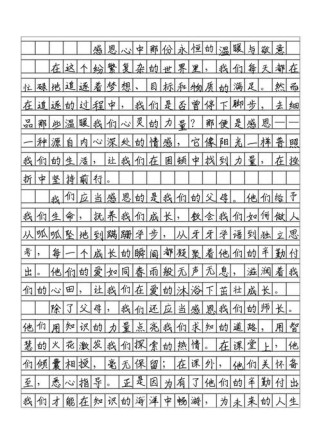 感恩心中那份永恒的温暖与敬意
在这个纷繁复杂的世界里，我们每天都在
忙碌地追逐着梦想、目标和物质的满足。然而
在追逐的过程中，我们是否曾停下脚步，去细
品那些温暖我们心灵的力量？那便是感恩——
一种源自内心深处的情感，它像阳光一样普照
我们的生活，让我们在困顿中找到力量，在挫
折中坚持前行。
我们应当感恩的是我们的父母。他们给予
我们生命，抚养我们成长，教会我们如何做人
从呱呱坠地到蹒跚学步，从牙牙学语到独立思
考，每一个成长的瞬间都凝聚着他们的辛勤付
出。他们的爱如同春雨般无声无息，滋润着我
们的心田，让我们在爱的沐浴下茁壮成长。
除了父母，我们还应当感恩我们的师长。
他们用知识的力量点亮我们求知的道路，用智
慧的火花激发我们探索的热情。在课堂上，他
们倾囊相授，毫无保留；在课外，他们关怀备
至，悉心指导。正是因为有了他们的辛勤付出
我们才能在知识的海洋中畅游，为未来的人生